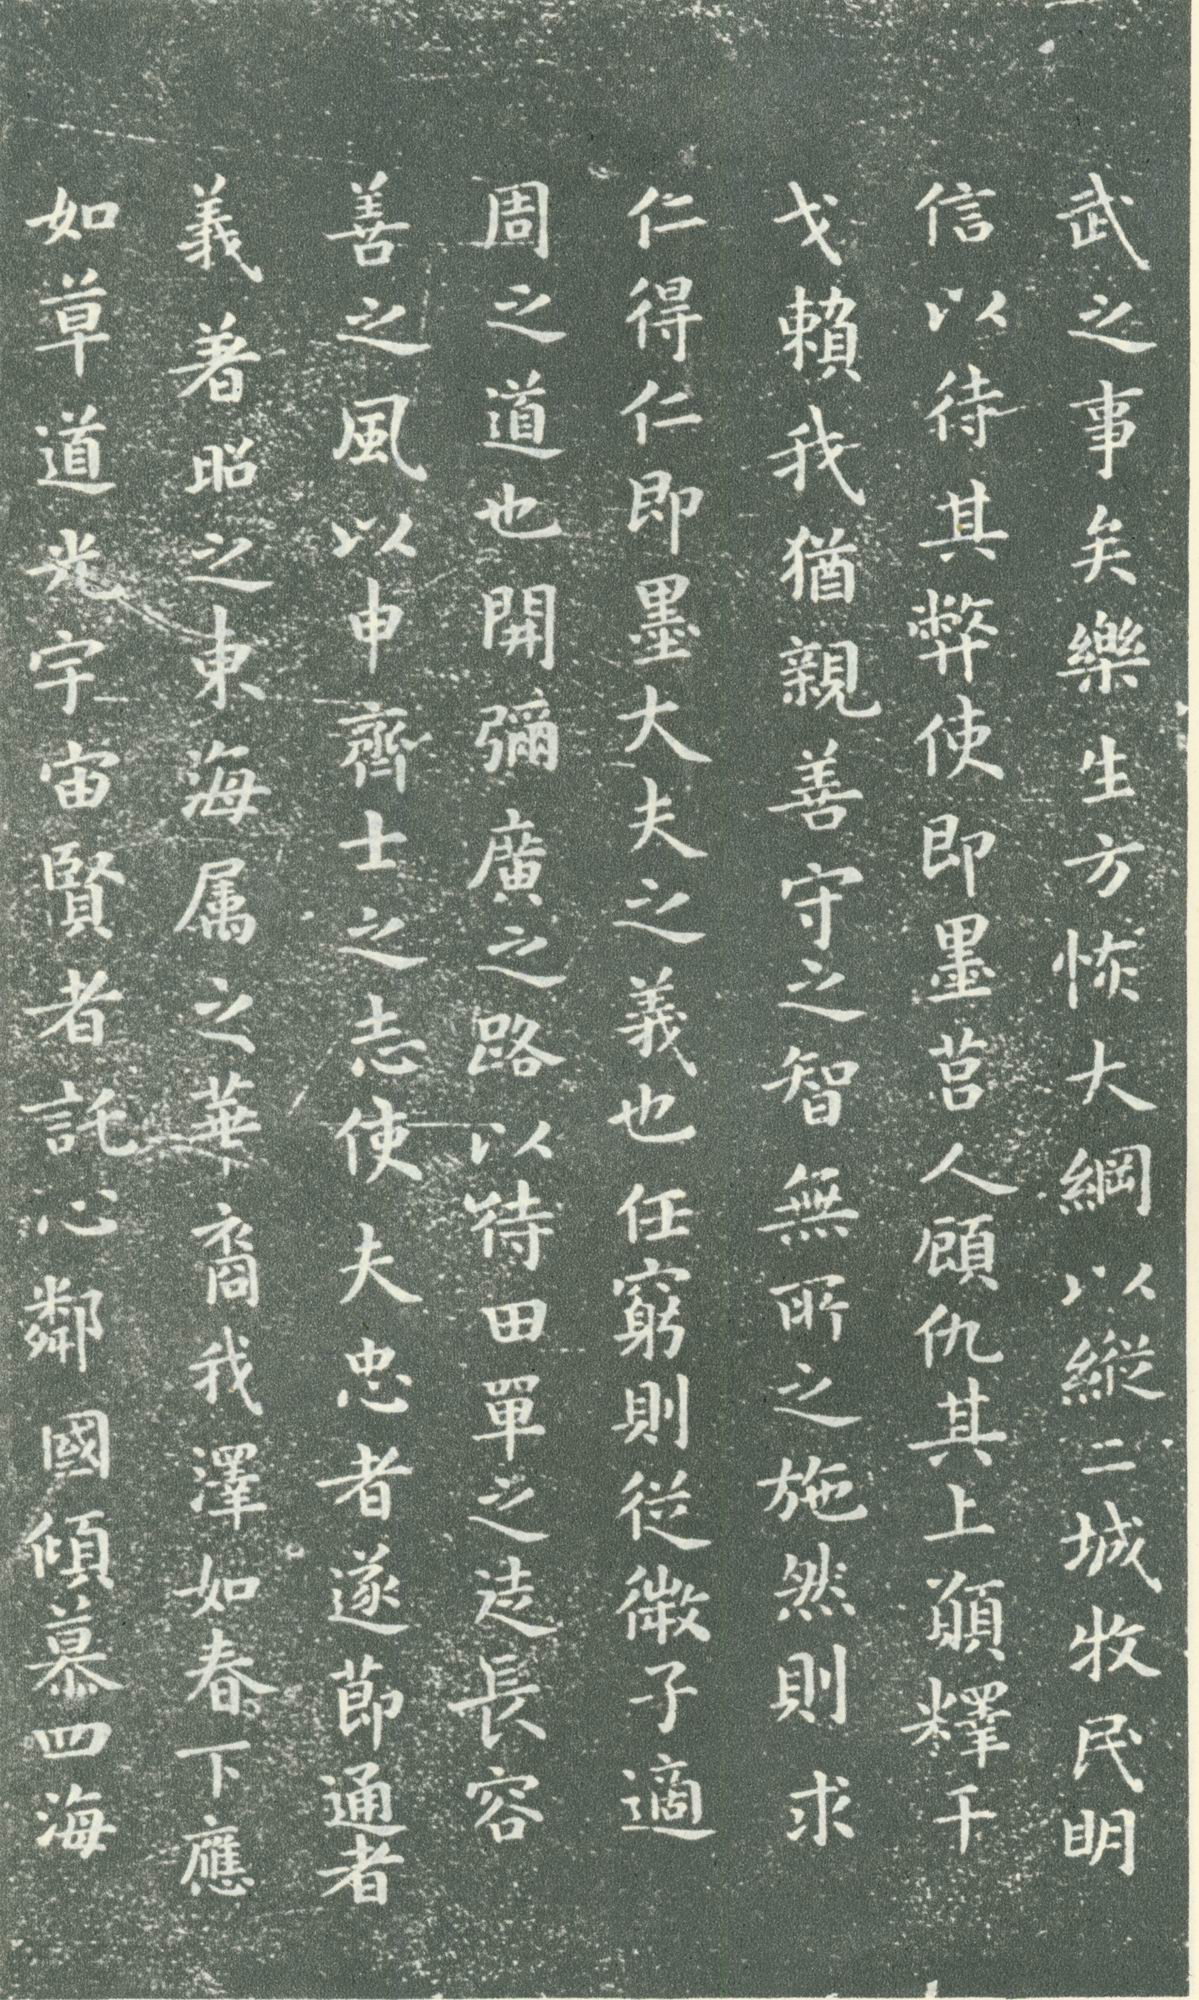 武之事矣樂生方恢大綱以縱二城收民明
信以待其弊使即墨莒人顧仇其上願釋干
戈賴我猶親善守之智無所之施然則求
仁得仁即墨大夫之義也任窮則從微子適
周之道也開彌廣之路以待田單之徒長容
善之風以申齊士之志使夫忠者遂節通者
義著昭之東海属之華裔我澤如春下應
如草道光宇宙賢者託心鄰國傾慕四海